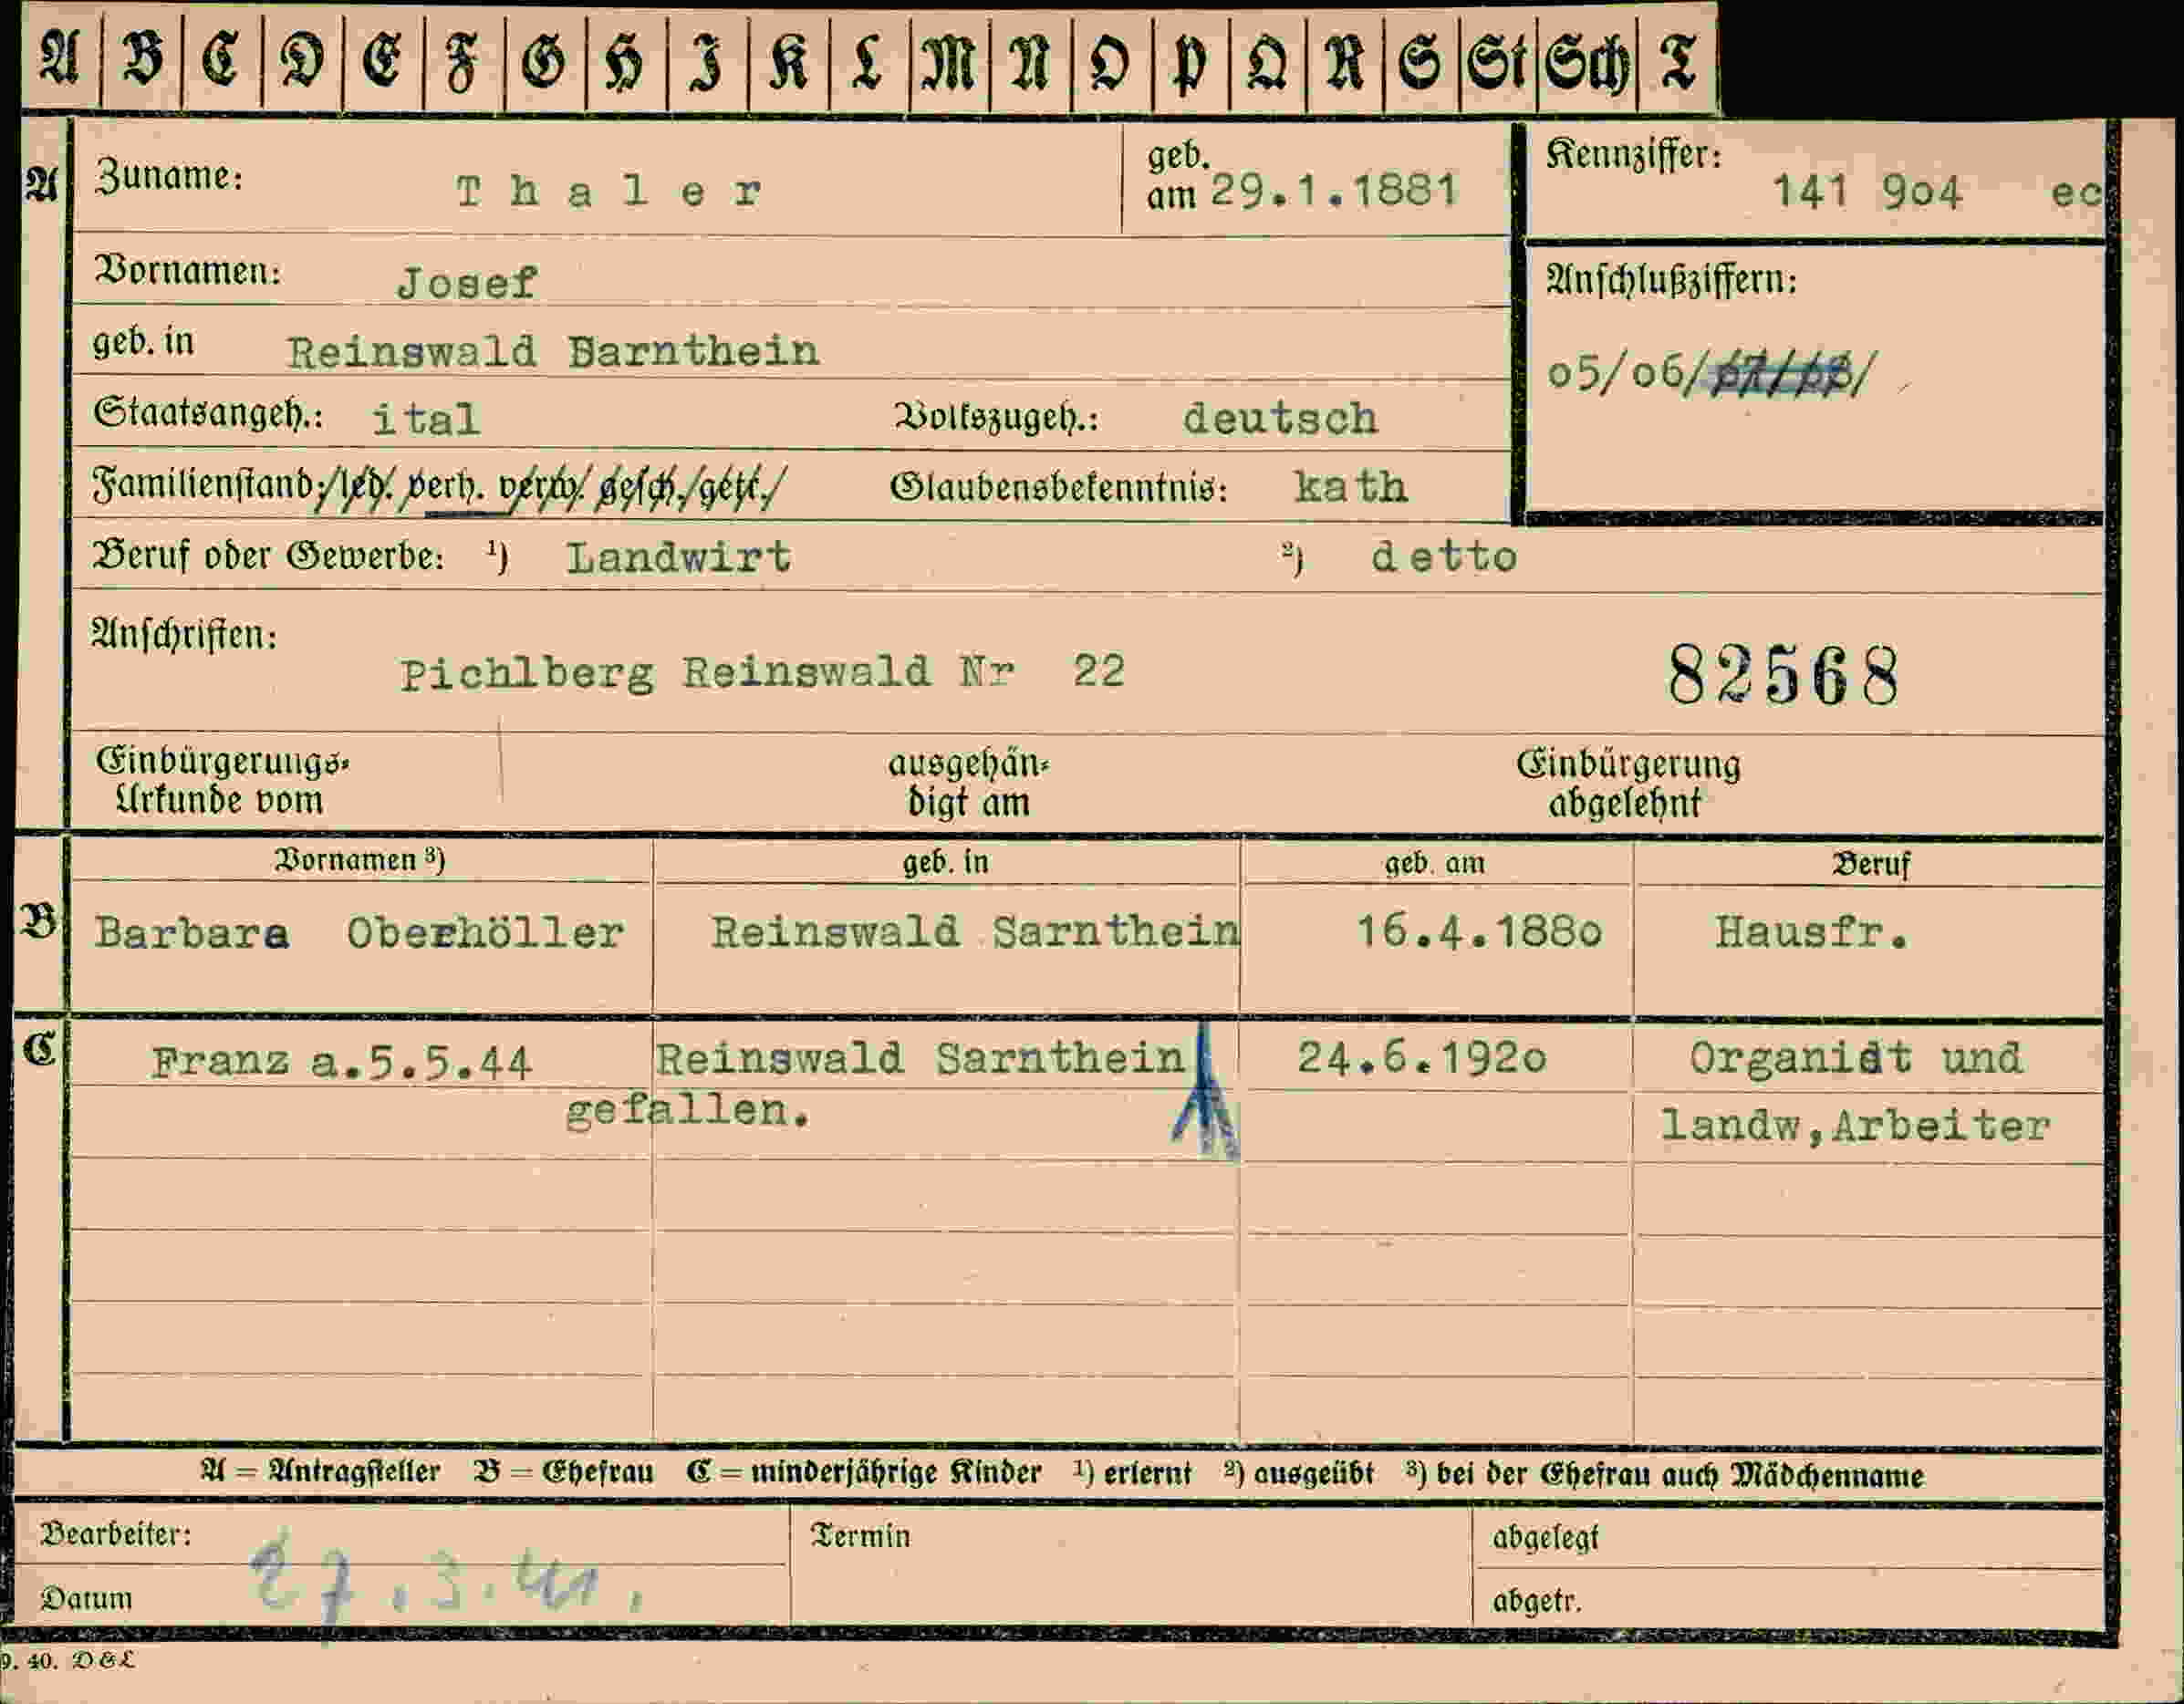 A B C D E F G H I K L M N O P Q R S St Sch T
A Zuname: Thaler geb. am 29.1.1881 Kennziffer: 141 9o4 ec
Vornamen: Josef Anschlußziffern:
geb. in Reinswald Barnthein o5/o6/
Staatsangeh.: ital Volkszugeh.: deutsch
Familienstand: led. verh. verw. gesch. getr. Glaubensbekenntnis: kath
Beruf oder Gewerbe: 1) Landwirt 2) detto
Anschriften:
Pichlberg Reinswald Nr 22 82568
Einbürgerungs- ausgehän- Einbürgerung
Urkunde vom digt am abgelehnt
Vornamen 3) geb. in geb. am Beruf
B Barbara Oberhöller Reinswald Sarnthein 16.4.188o Hausfr.
C Franz a.5.5.44 Reinswald Sarnthein 24.6.192o Organidt und
gefallen. landw,Arbeiter
A = Antragsteller B = Ehefrau C = minderjährige Kinder 1) erlernt 2) ausgeübt 3) bei der Ehefrau auch Mädchenname
Bearbeiter: Termin abgelegt
Datum 27.3.41. abgetr.
9. 40. D&L